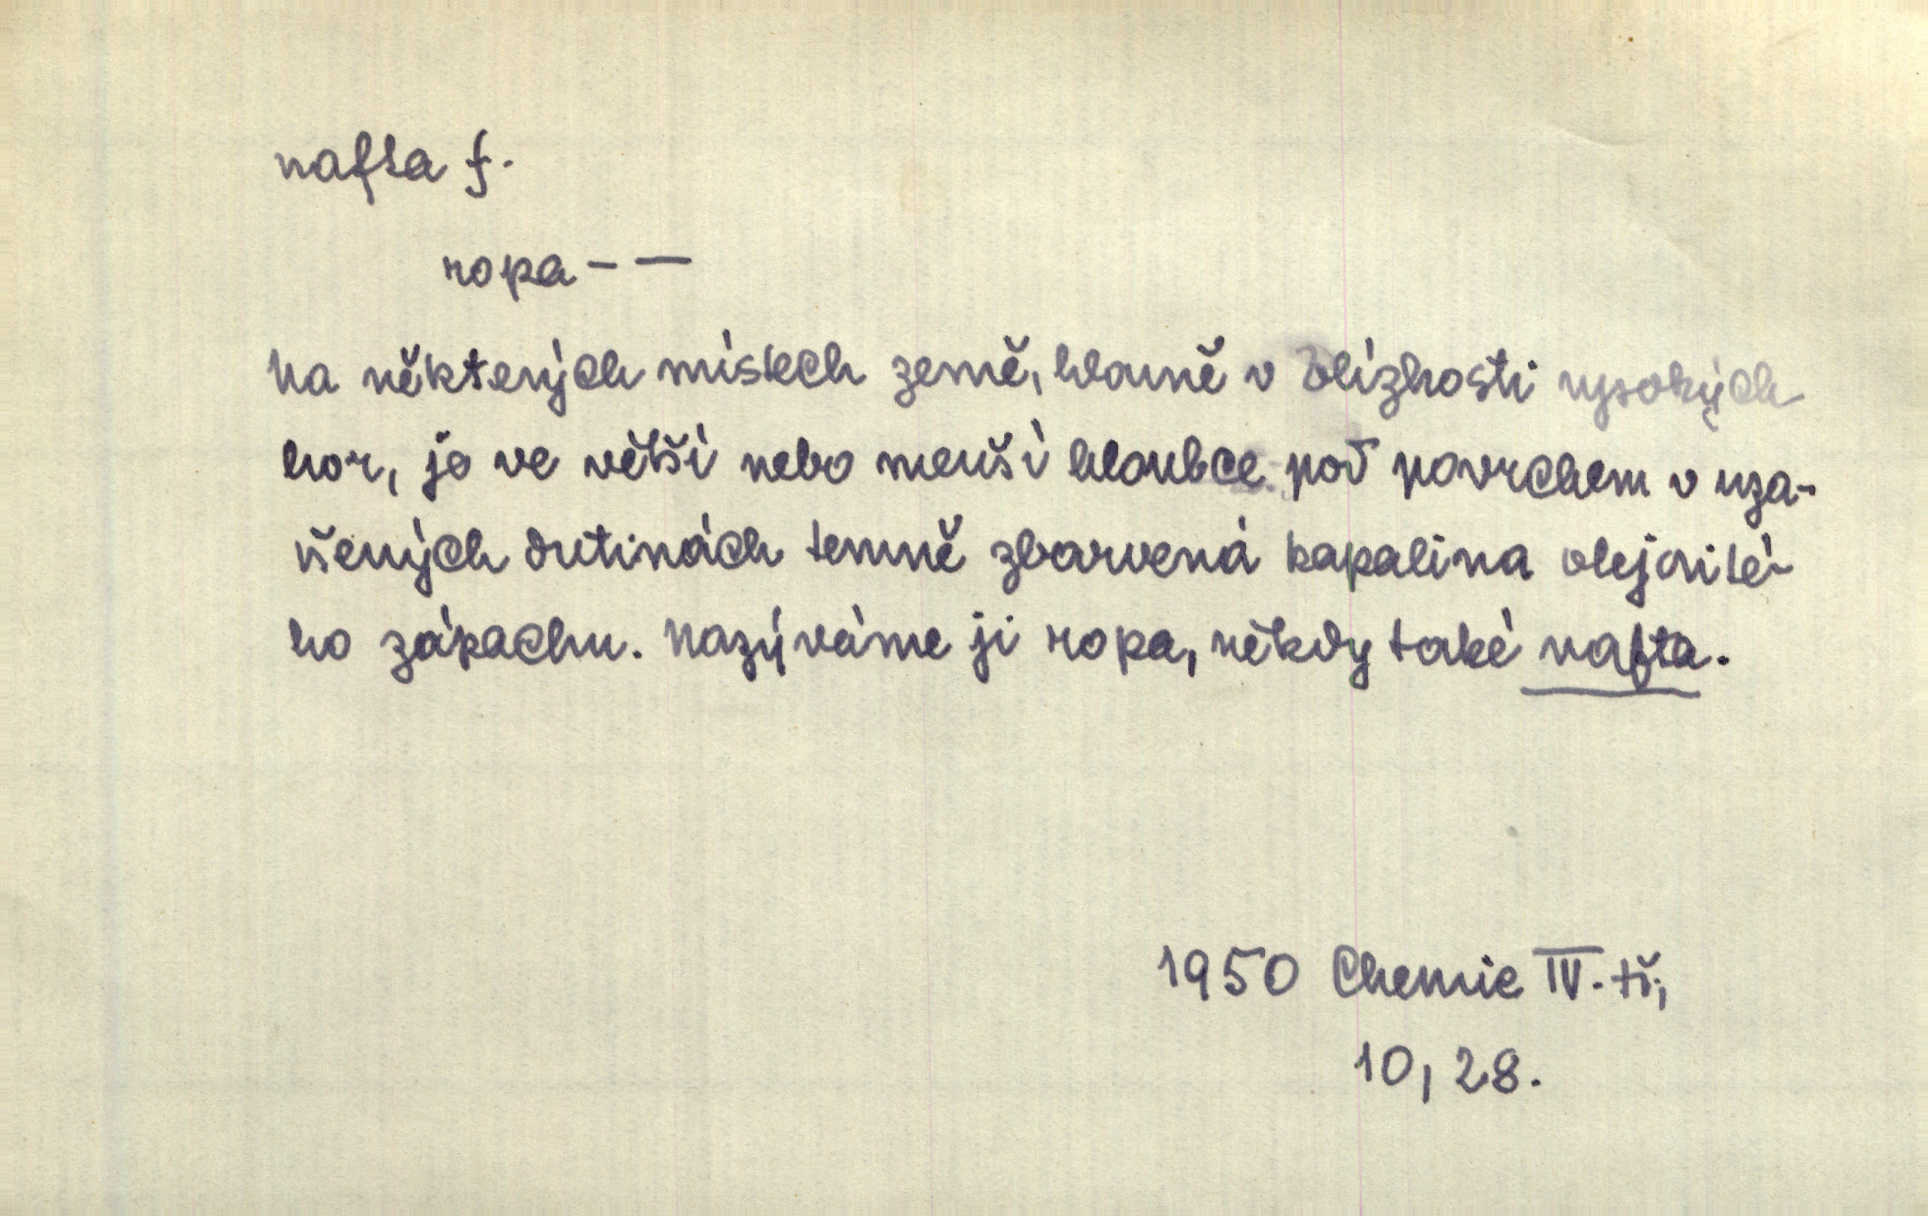 nafta f.
ropa – —
Na některých místech země, hlavně v blízkosti vysokých
hor, je ve větší nebo menší hloubce pod povrchem v uza-
vřených dutinách temně zbarvená kapalina olejovité-
ho zápachu. Nazýváme ji ropa, někdy také nafta.
1950 Chemie IV. tř.,
10, 28.